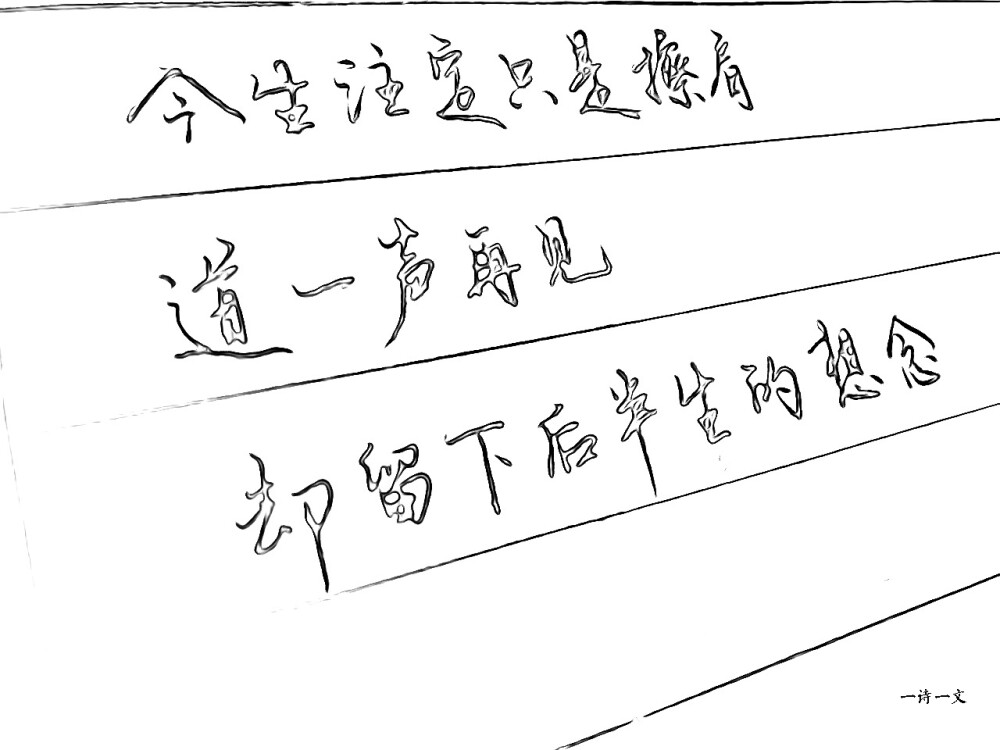 今生注定只是擦肩
道一声再见
却留下后半生的想念
一诗一文